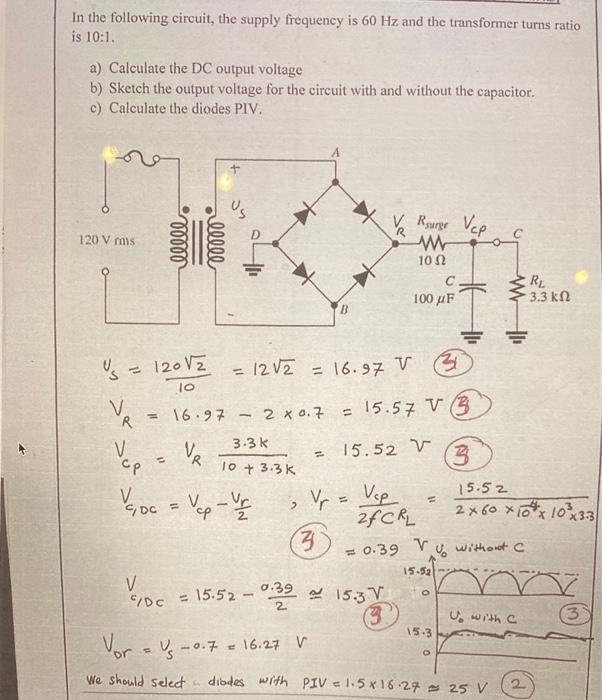 In the following circuit, the supply frequency is 60 Hz and the transformer turns ratio
is 10:1.
a) Calculate the DC output voltage
b) Sketch the output voltage for the circuit with and without the capacitor.
c) Calculate the diodes PIV.
A
+
υs
D
120 V rms
VR Rsurge Vcp C
10 Ω
C
100 μF
RL
3.3 kΩ
-
B
υs = 120√2 / 10 = 12√2 = 16.97 V 3
VR = 16.97 - 2 x 0.7 = 15.57 V 3
Vcp = VR 3.3k / 10 + 3.3k = 15.52 V 3
Vc,DC = Vcp - Vr/2 , Vr = Vcp / 2fCRL = 15.52 / 2 x 60 x 10⁻⁴ x 10³ x 3.3
3 = 0.39 V
υo without C
15.52
0
Vc,DC = 15.52 - 0.39 / 2 ≃ 15.3 V 3
υo with C 3
15.3
0
Vor = υs - 0.7 = 16.27 V
We should select diodes with PIV = 1.5 x 16.27 ≈ 25 V 2